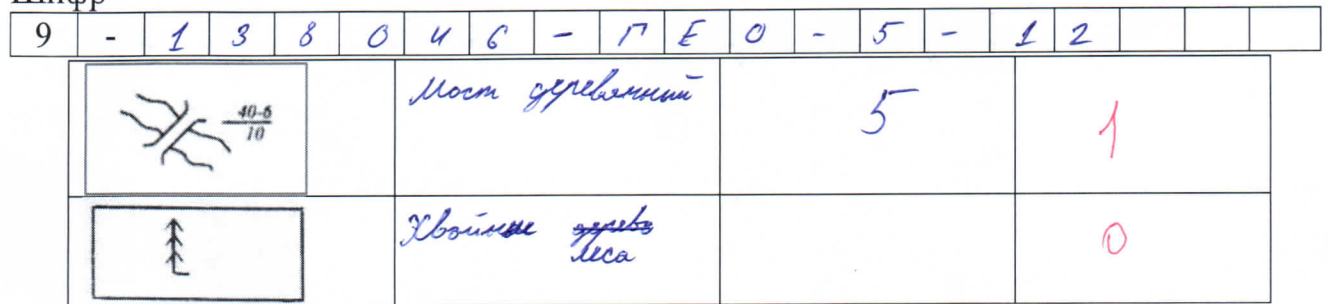 Шифр
9 - 1 3 8 0 4 6 - Г Е О - 5 - 1 2
40-6
10
Мост деревянный 5 1
Хвойные дерево
леса 0